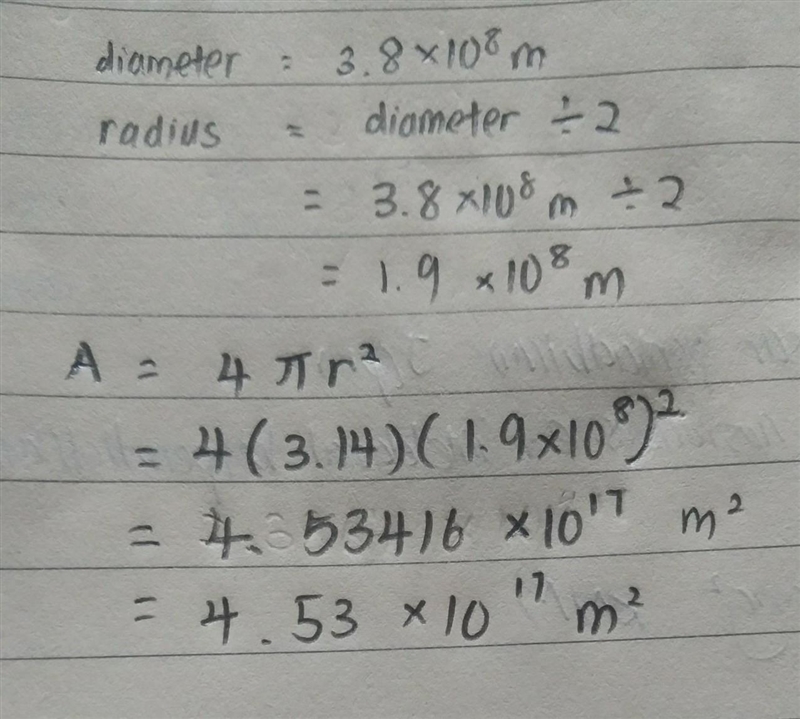 diameter = 3.8 × 10⁸ m
radius = diameter ÷ 2
= 3.8 × 10⁸ m ÷ 2
= 1.9 × 10⁸ m
A = 4 π r²
= 4 ( 3.14 ) ( 1.9 × 10⁸ )²
= 4.53416 × 10¹⁷ m²
= 4.53 × 10¹⁷ m²